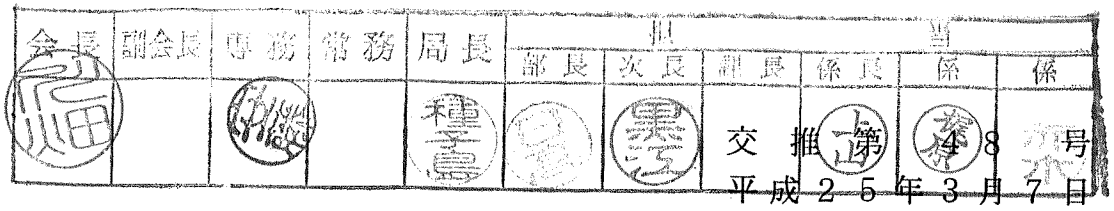 会長 副会長 専務 常務 局長 担当
部長 次長 課長 係長 係 係
種子島 黒江 上山
交推第48号
平成25年3月7日